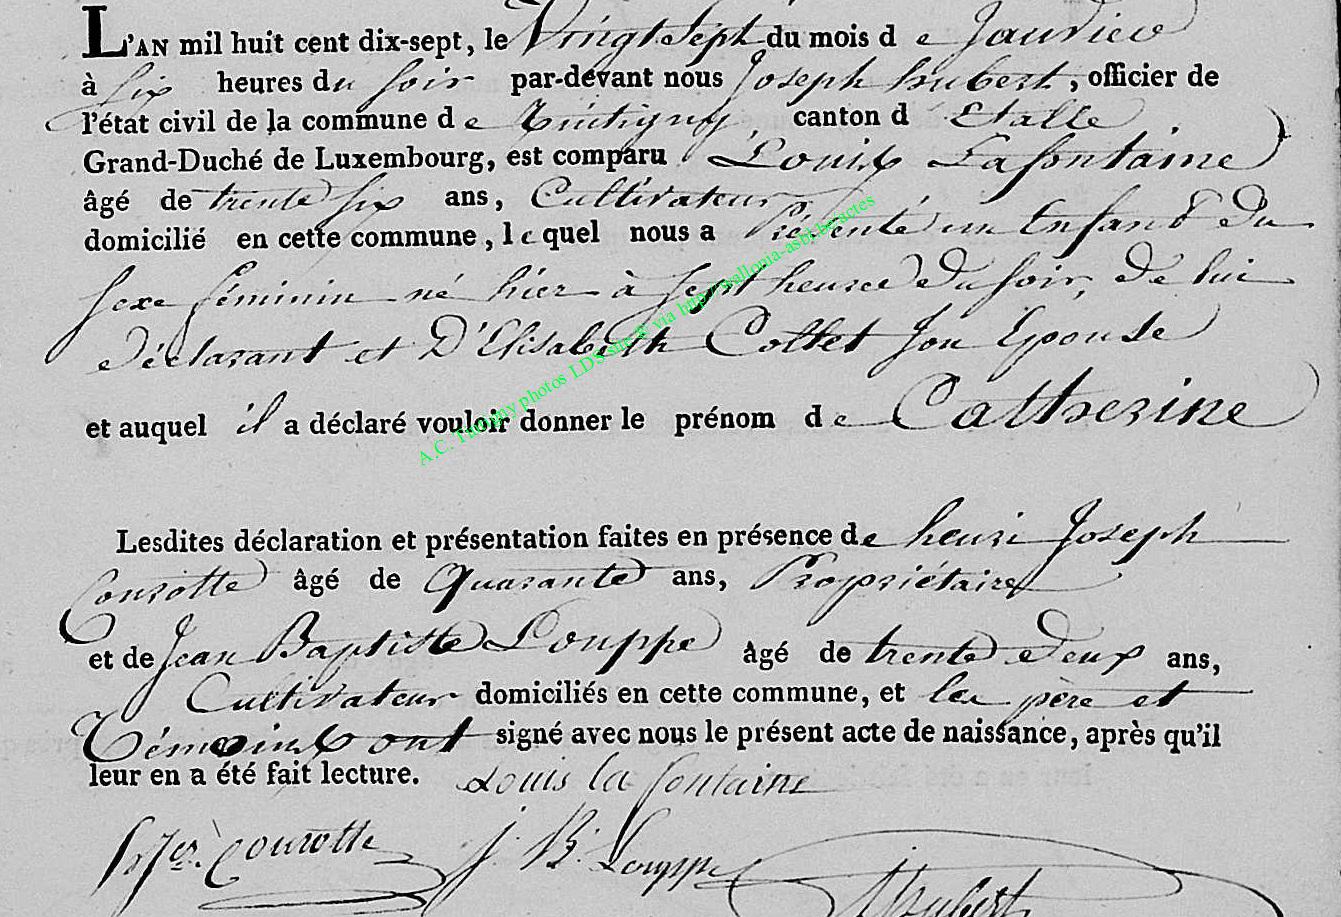 L'AN mil huit cent dix-sept, le Vingt Sept du mois de Janvier
à six heures du soir par-devant nous Joseph hubert, officier de
l'état civil de la commune de Tintigny, canton d Etalle
Grand-Duché de Luxembourg, est comparu Louis Lafontaine
âgé de trente six ans, Cultivateur
domicilié en cette commune, lequel nous a Présenté un Enfant Du
sexe féminin né hier à sept heures Du soir, De lui
Déclarant et D'Elisabeth Collet son Epouse
et auquel il a déclaré vouloir donner le prénom de Catherine
Lesdites déclaration et présentation faites en présence de henri Joseph
Courotte âgé de Quarante ans, Propriétaire
et de Jean Baptiste Louppe âgé de trente Deux ans,
Cultivateur domiciliés en cette commune, et les père et
Témoins ont signé avec nous le présent acte de naissance, après qu'il
leur en a été fait lecture. Louis la fontaine
courotte J. B. Louppe
Hubert
A.C. Tintigny photos LDS site & via http://wallonia-asbl.be/actes